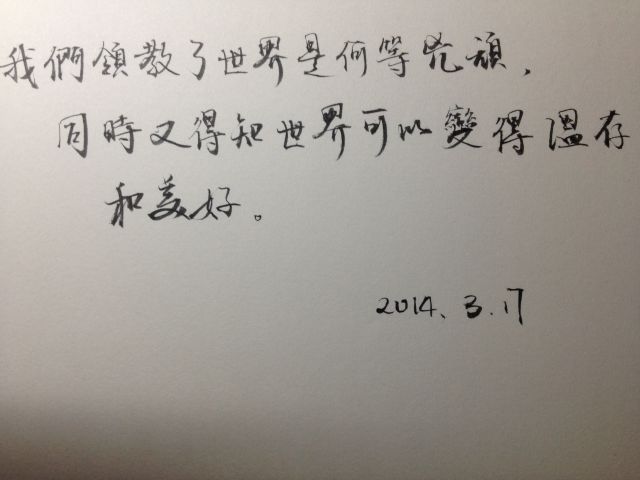 我們領教了世界是何等兇頑，
同時又得知世界可以變得溫存
和美好。
2014.3.17